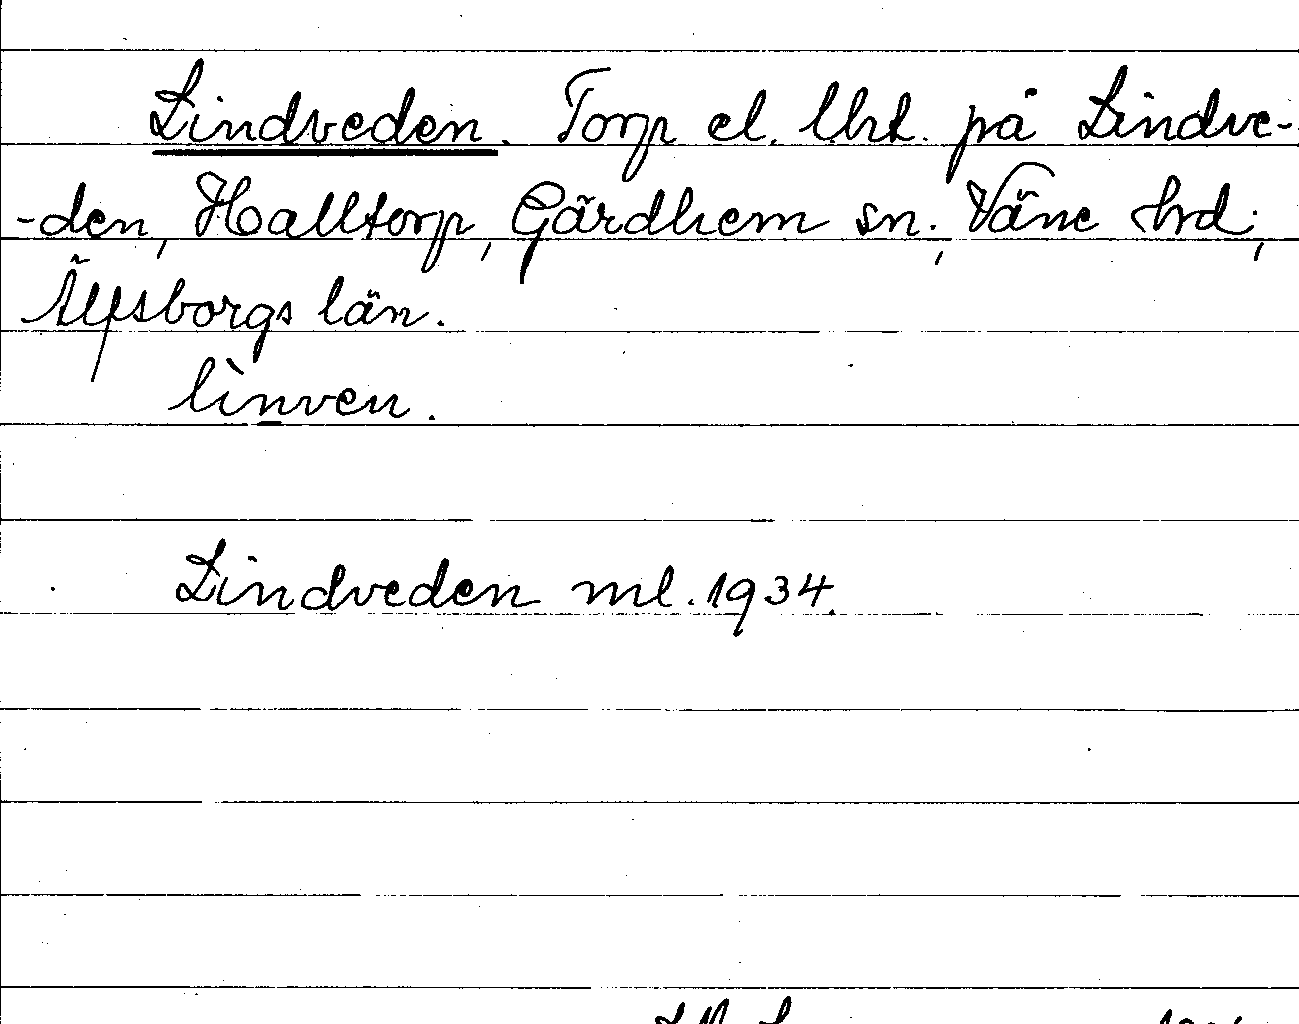 Lindveden. Torp el. lht. på Lindve-
-den, Halltorp, Gärdhem sn., Väne hd.,
Älfsborgs län.
lìnven.
Lindveden ml. 1934.